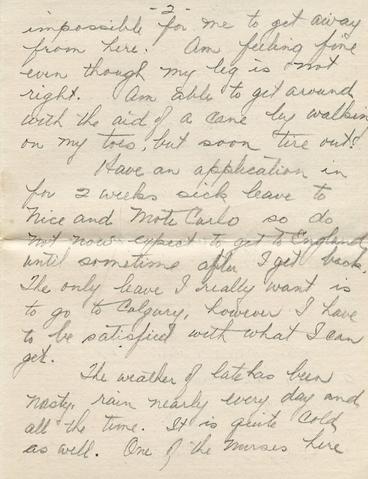 - 2 -
impossible for me to get away
from here. Am feeling fine
even though my leg is not
right. Am able to get around
with the aid of a cane by walkin
on my toes, but soon tire out.
Have an application in
for 2 weeks sick leave to
Nice and Monte Carlo so do
not now expect to get to England
until sometime after I get back.
The only leave I really want is
to go to Calgary, however I have
to be satisfied with what I can
get.
The weather of late has been
nasty, rain nearly every day and
all the time. It is quite cold
as well. One of the nurses here